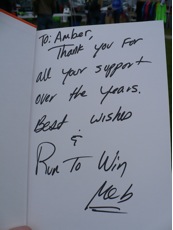 To: Amber,
Thank you for
all your support
over the years.
Best wishes
&
Run To Win
Meb